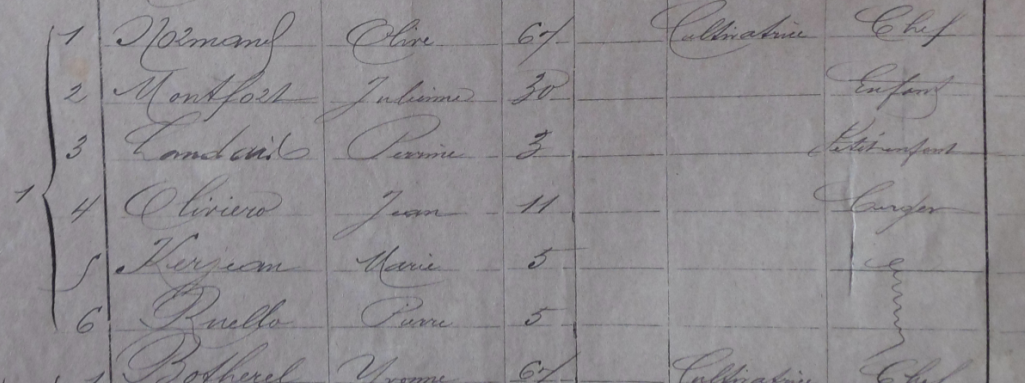 1 Normand Olive 67 Cultivatrice Chef
2 Montfort Julienne 30 Enfant
3 Perrine 3 Petit enfant
1 4 Oliviero Jean 11
5 Kerjean Marie 5
6 Ruello Pierre 5
1 Botherel Yvonne 67 Cultivatrice Chef